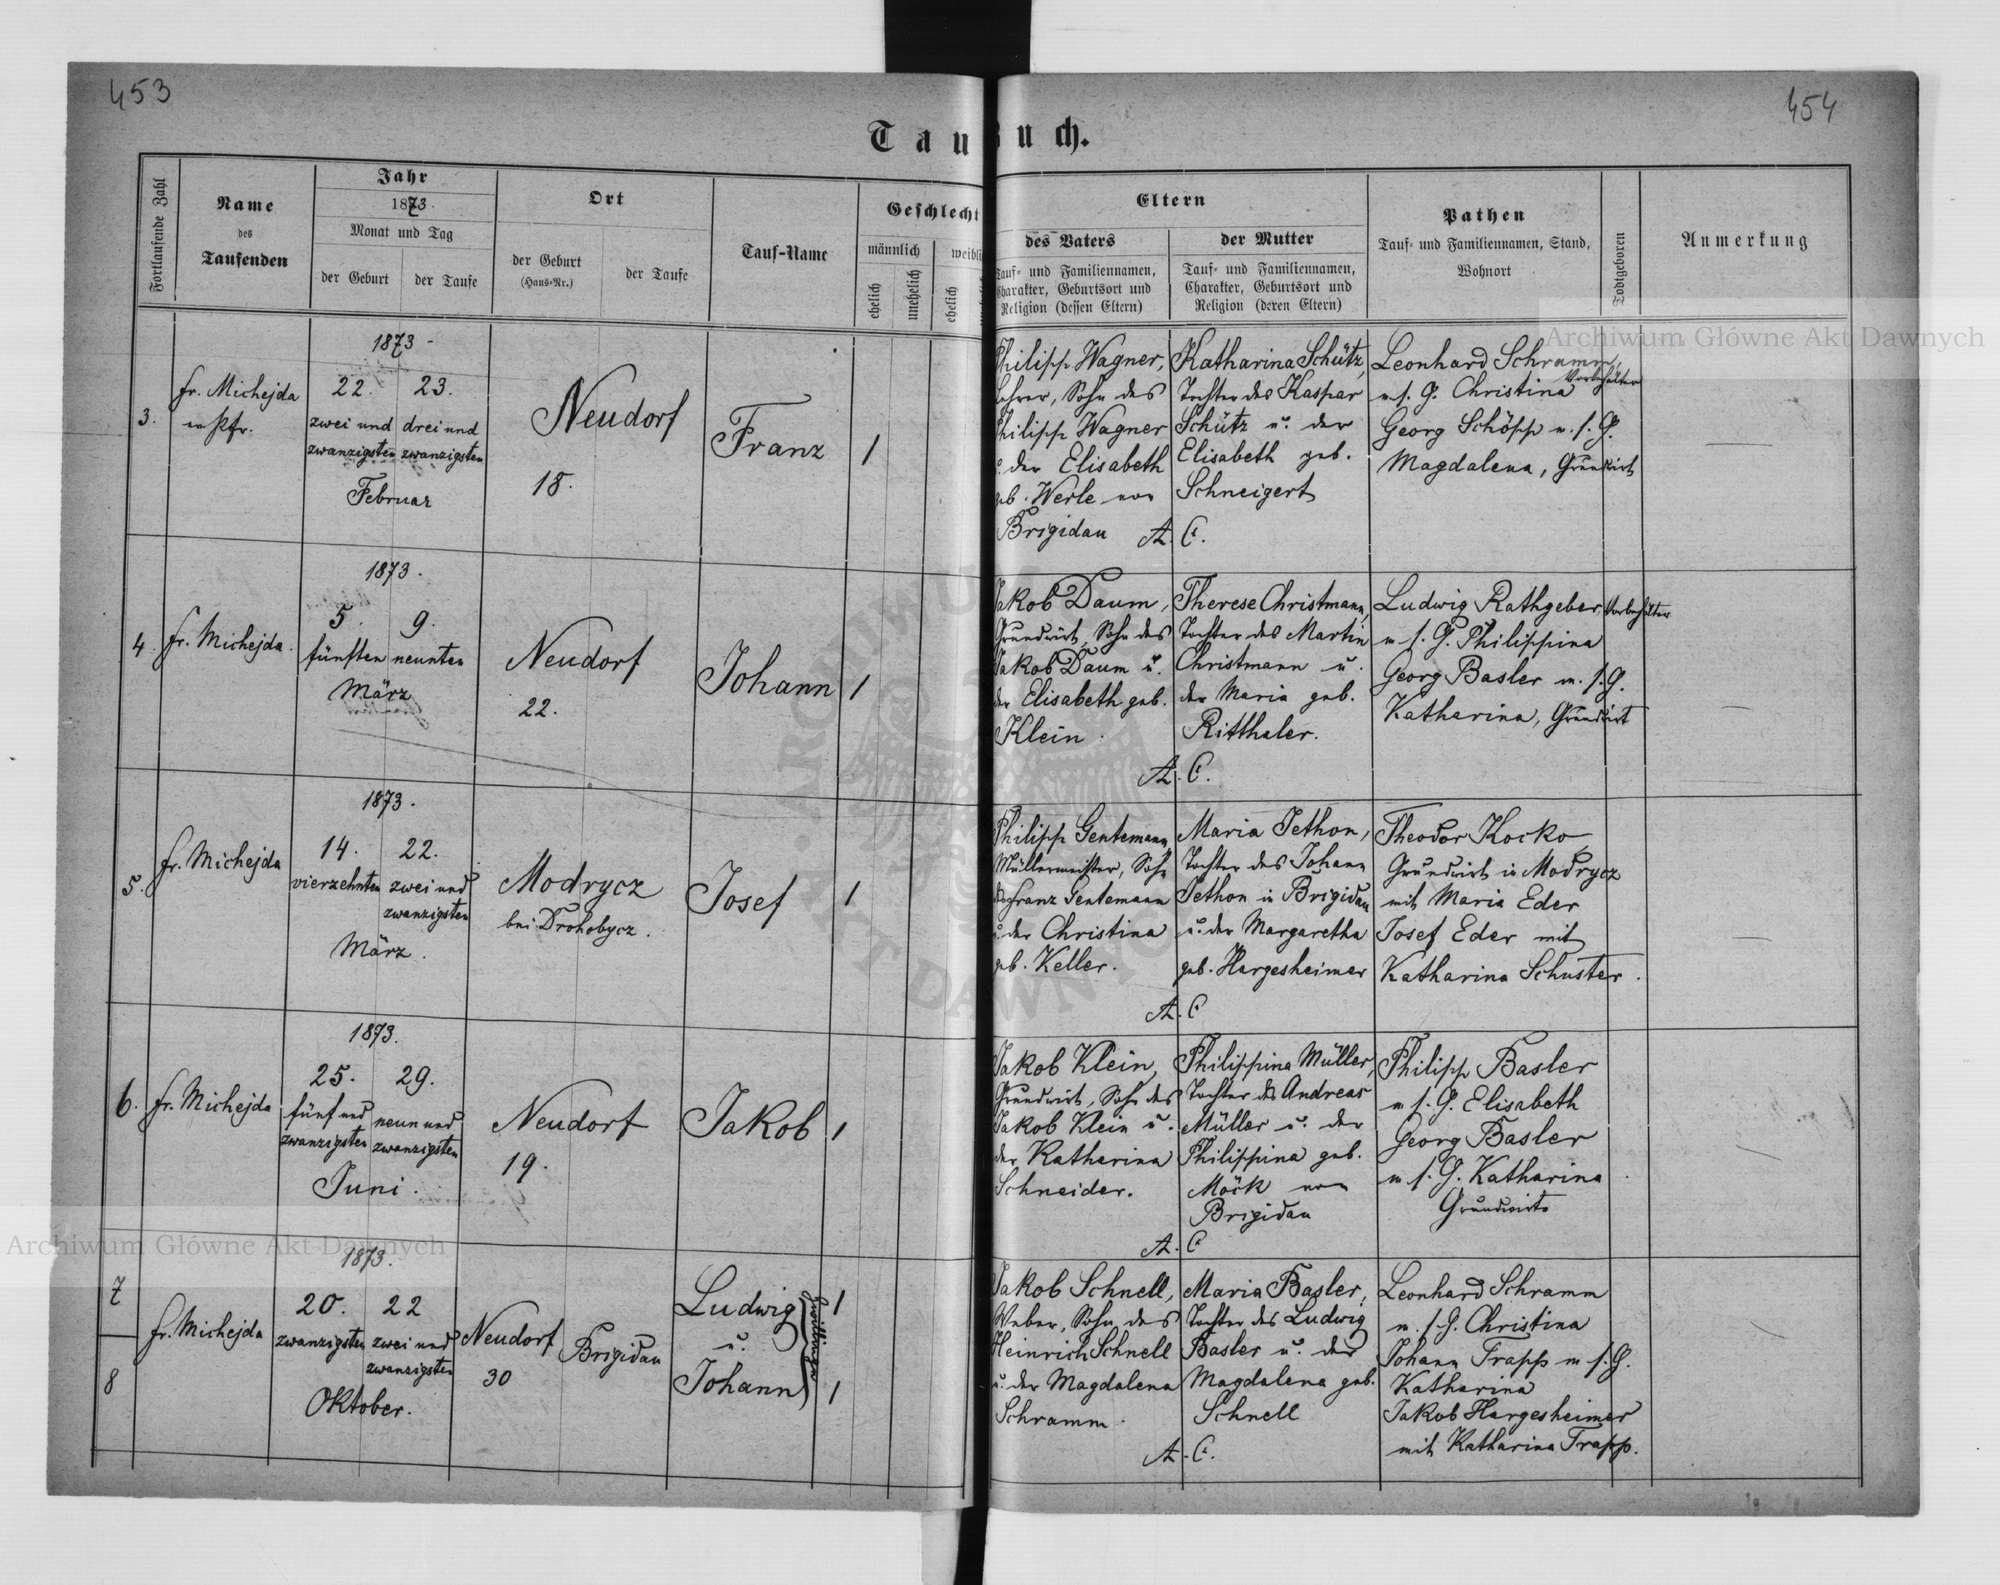 453
454
Taufbuch.
Fortlaufende Zahl
Name
des
Taufenden
Jahr
1873.
Monat und Tag
der Geburt
der Taufe
Ort
der Geburt
(Haus-Nr.)
der Taufe
Tauf-Name
Geschlecht
männlich
ehelich
unehelich
ehelich
Eltern
des Vaters
Tauf- und Familiennamen,
Charakter, Geburtsort und
Religion (dessen Eltern)
der Mutter
Tauf- und Familiennamen,
Charakter, Geburtsort und
Religion (deren Eltern)
Pathen
Tauf- und Familiennamen, Stand,
Wohnort
Todtgeboren
Anmerkung
3.
fr. Michejda
ev. Pfr.
1873
22. 23.
zwei und drei und
zwanzigsten zwanzigsten
Februar
Neudorf
18.
Franz
1
Philipp Wagner,
Lehrer, Sohn des
Philipp Wagner
u. der Elisabeth
geb. Werle von
Brigidau
Katharina Schütz,
Tochter des Kaspar
Schütz u. der
Elisabeth geb.
Schneigert
A. C.
Leonhard Schramm,
Vorbehälter
m. s. G. Christina
Georg Schöpp m. s. G.
Magdalena, Grundwirt
4.
fr. Michejda.
1873.
5. 9.
fünften neunten
März
Neudorf
22.
Johann
1
Jakob Daum,
Grundwirt, Sohn des
Jakob Daum u.
der Elisabeth geb.
Klein.
Therese Christmann,
Tochter des Martin
Christmann u.
der Maria geb.
Ritthaler.
A. C.
Ludwig Rathgeber, Vorbehälter
m. s. G. Philippina
Georg Basler m. s. G.
Katharina, Grundwirt
5.
fr. Michejda
1873.
14. 22.
vierzehnten zwei und
zwanzigsten
März.
Modrycz
bei Drohobycz.
Josef
1
Philipp Gentemann,
Müllermeister, Sohn
des Franz Gentemann
u. der Christina
geb. Keller.
Maria Jethon,
Tochter des Johann
Jethon in Brigidau
u. der Margaretha
geb. Hargesheimer
A. C
Theodor Kocko
Grundwirt in Modrycz
mit Maria Eder
Josef Eder mit
Katharina Schuster.
6.
fr. Michejda
1873.
25. 29.
fünf und neun und
zwanzigsten zwanzigsten
Juni.
Neudorf
19.
Jakob
1
Jakob Klein,
Grundwirt, Sohn des
Jakob Klein u.
der Katharina
Schneider.
Philippina Müller,
Tochter des Andreas
Müller u. der
Philippina geb.
Möck von
Brigidau
A. C
Philipp Basler
m. s. G. Elisabeth
Georg Basler
m. s. G. Katharina
Grundwirte
7
8
fr. Michejda
1873.
20. 22
zwanzigsten zwei und
zwanzigsten
Oktober.
Neudorf
30
Brigidau
Ludwig
u.
Johann
Zwillinge
1
1
Jakob Schnell,
Weber, Sohn des
Heinrich Schnell
u. der Magdalena
Schramm.
Maria Basler,
Tochter des Ludwig
Basler u. der
Magdalena geb.
Schnell
A. C.
Leonhard Schramm
m. s. G. Christina
Johann Trapp m s. G.
Katharina
Jakob Hargesheimer
mit Katharina Trapp.
Archiwum Główne Akt Dawnych
Archiwum Główne Akt Dawnych